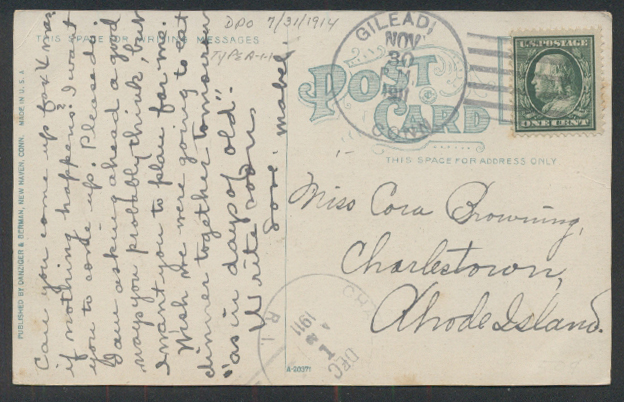 DPO 7/31/1914
TYPE A-1-1
THIS SPACE FOR WRITING MESSAGES
Can you come up for X mas
if nothing happens? I want
you to come up. Please do.
I am asking ahead a good
ways you probably think, but
I want you to plan for me.
Wish we were going to eat
dinner together tomorrow
"as in days of old."
Write soon
Love. Mabel.
PUBLISHED BY DANZIGER & BERMAN, NEW HAVEN, CONN. MADE IN U.S.A.
GILEAD
NOV
30
1911
CONN.
POST
CARD
U.S. POSTAGE
ONE CENT
THIS SPACE FOR ADDRESS ONLY
Miss Cora Browning,
Charlestown,
Rhode Island.
DEC
1
1911
R.I.
A-20371